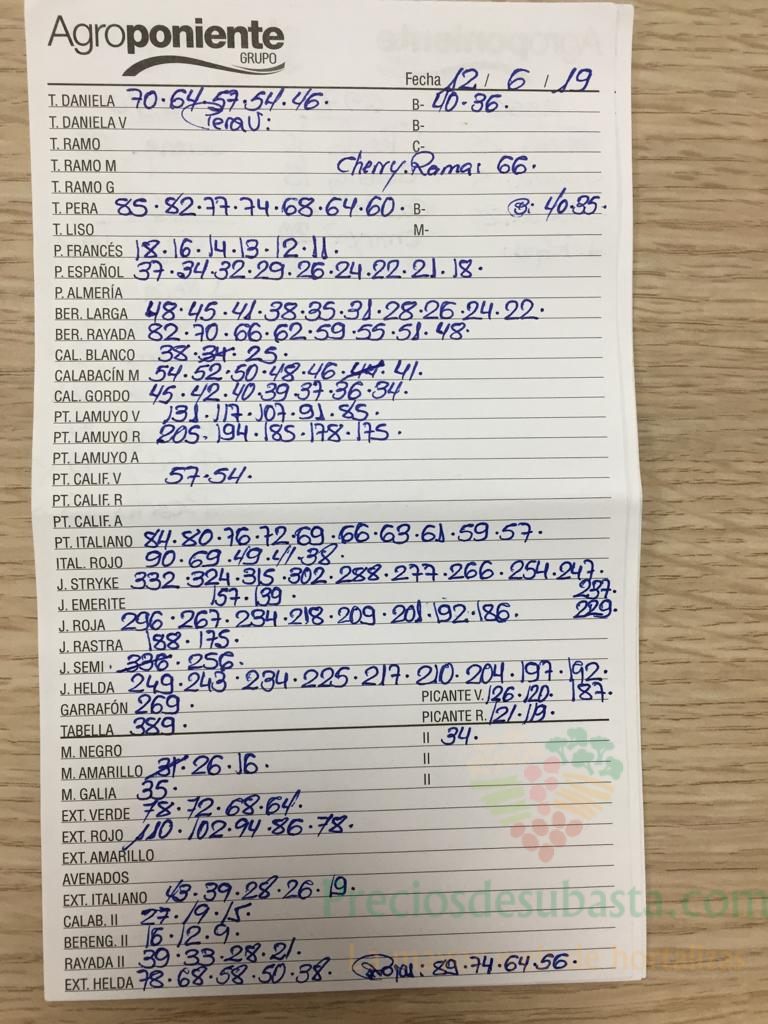 Agroponiente
GRUPO
Fecha 12 / 6 / 19
T. DANIELA 70·64·57·54·46· B- 40·36·
T. DANIELA V B-
T. RAMO C-
T. RAMO M Cherry.Rama: 66·
T. RAMO G
T. PERA 85·82·77·74·68·64·60· B- B: 40·35·
T. LISO M-
P. FRANCÉS 18·16·14·13·12·11·
P. ESPAÑOL 37·34·32·29·26·24·22·21·18·
P. ALMERÍA
BER. LARGA 48·45·41·38·35·31·28·26·24·22·
BER. RAYADA 82·70·66·62·59·55·51·48·
CAL. BLANCO 38·34·25·
CALABACÍN M 54·52·50·48·46·44·41·
CAL. GORDO 45·42·40·39·37·36·34·
PT. LAMUYO V 131·117·107·91·85·
PT. LAMUYO R 205·194·185·178·175·
PT. LAMUYO A
PT. CALIF. V 57·54·
PT. CALIF. R
PT. CALIF. A
PT. ITALIANO 84·80·76·72·69·66·63·61·59·57·
ITAL. ROJO 90·69·49·41·38·
J. STRYKE 332·324·315·302·288·277·266·254·247·
J. EMERITE 157·139· 237·
J. ROJA 296·267·234·218·209·201·192·186· 229·
J. RASTRA 188·175·
J. SEMI· 336·256·
J. HELDA 249·243·234·225·217·210·204·197·192·
GARRAFÓN 269· PICANTE V. 126·120· 187·
TABELLA 389· PICANTE R. 121·119·
M. NEGRO II 34·
M. AMARILLO 31·26·16· II
M. GALIA 35· II
EXT. VERDE 78·72·68·64·
EXT. ROJO 110·102·94·86·78·
EXT. AMARILLO
AVENADOS
EXT. ITALIANO 43·39·28·26·19·
Preciosdesubasta.com
CALAB. II 27·19·15·
BERENG. II 16·12·9·
RAYADA II 39·33·28·21·
EXT. HELDA 78·68·58·50·38· Rojas: 89·74·64·56·